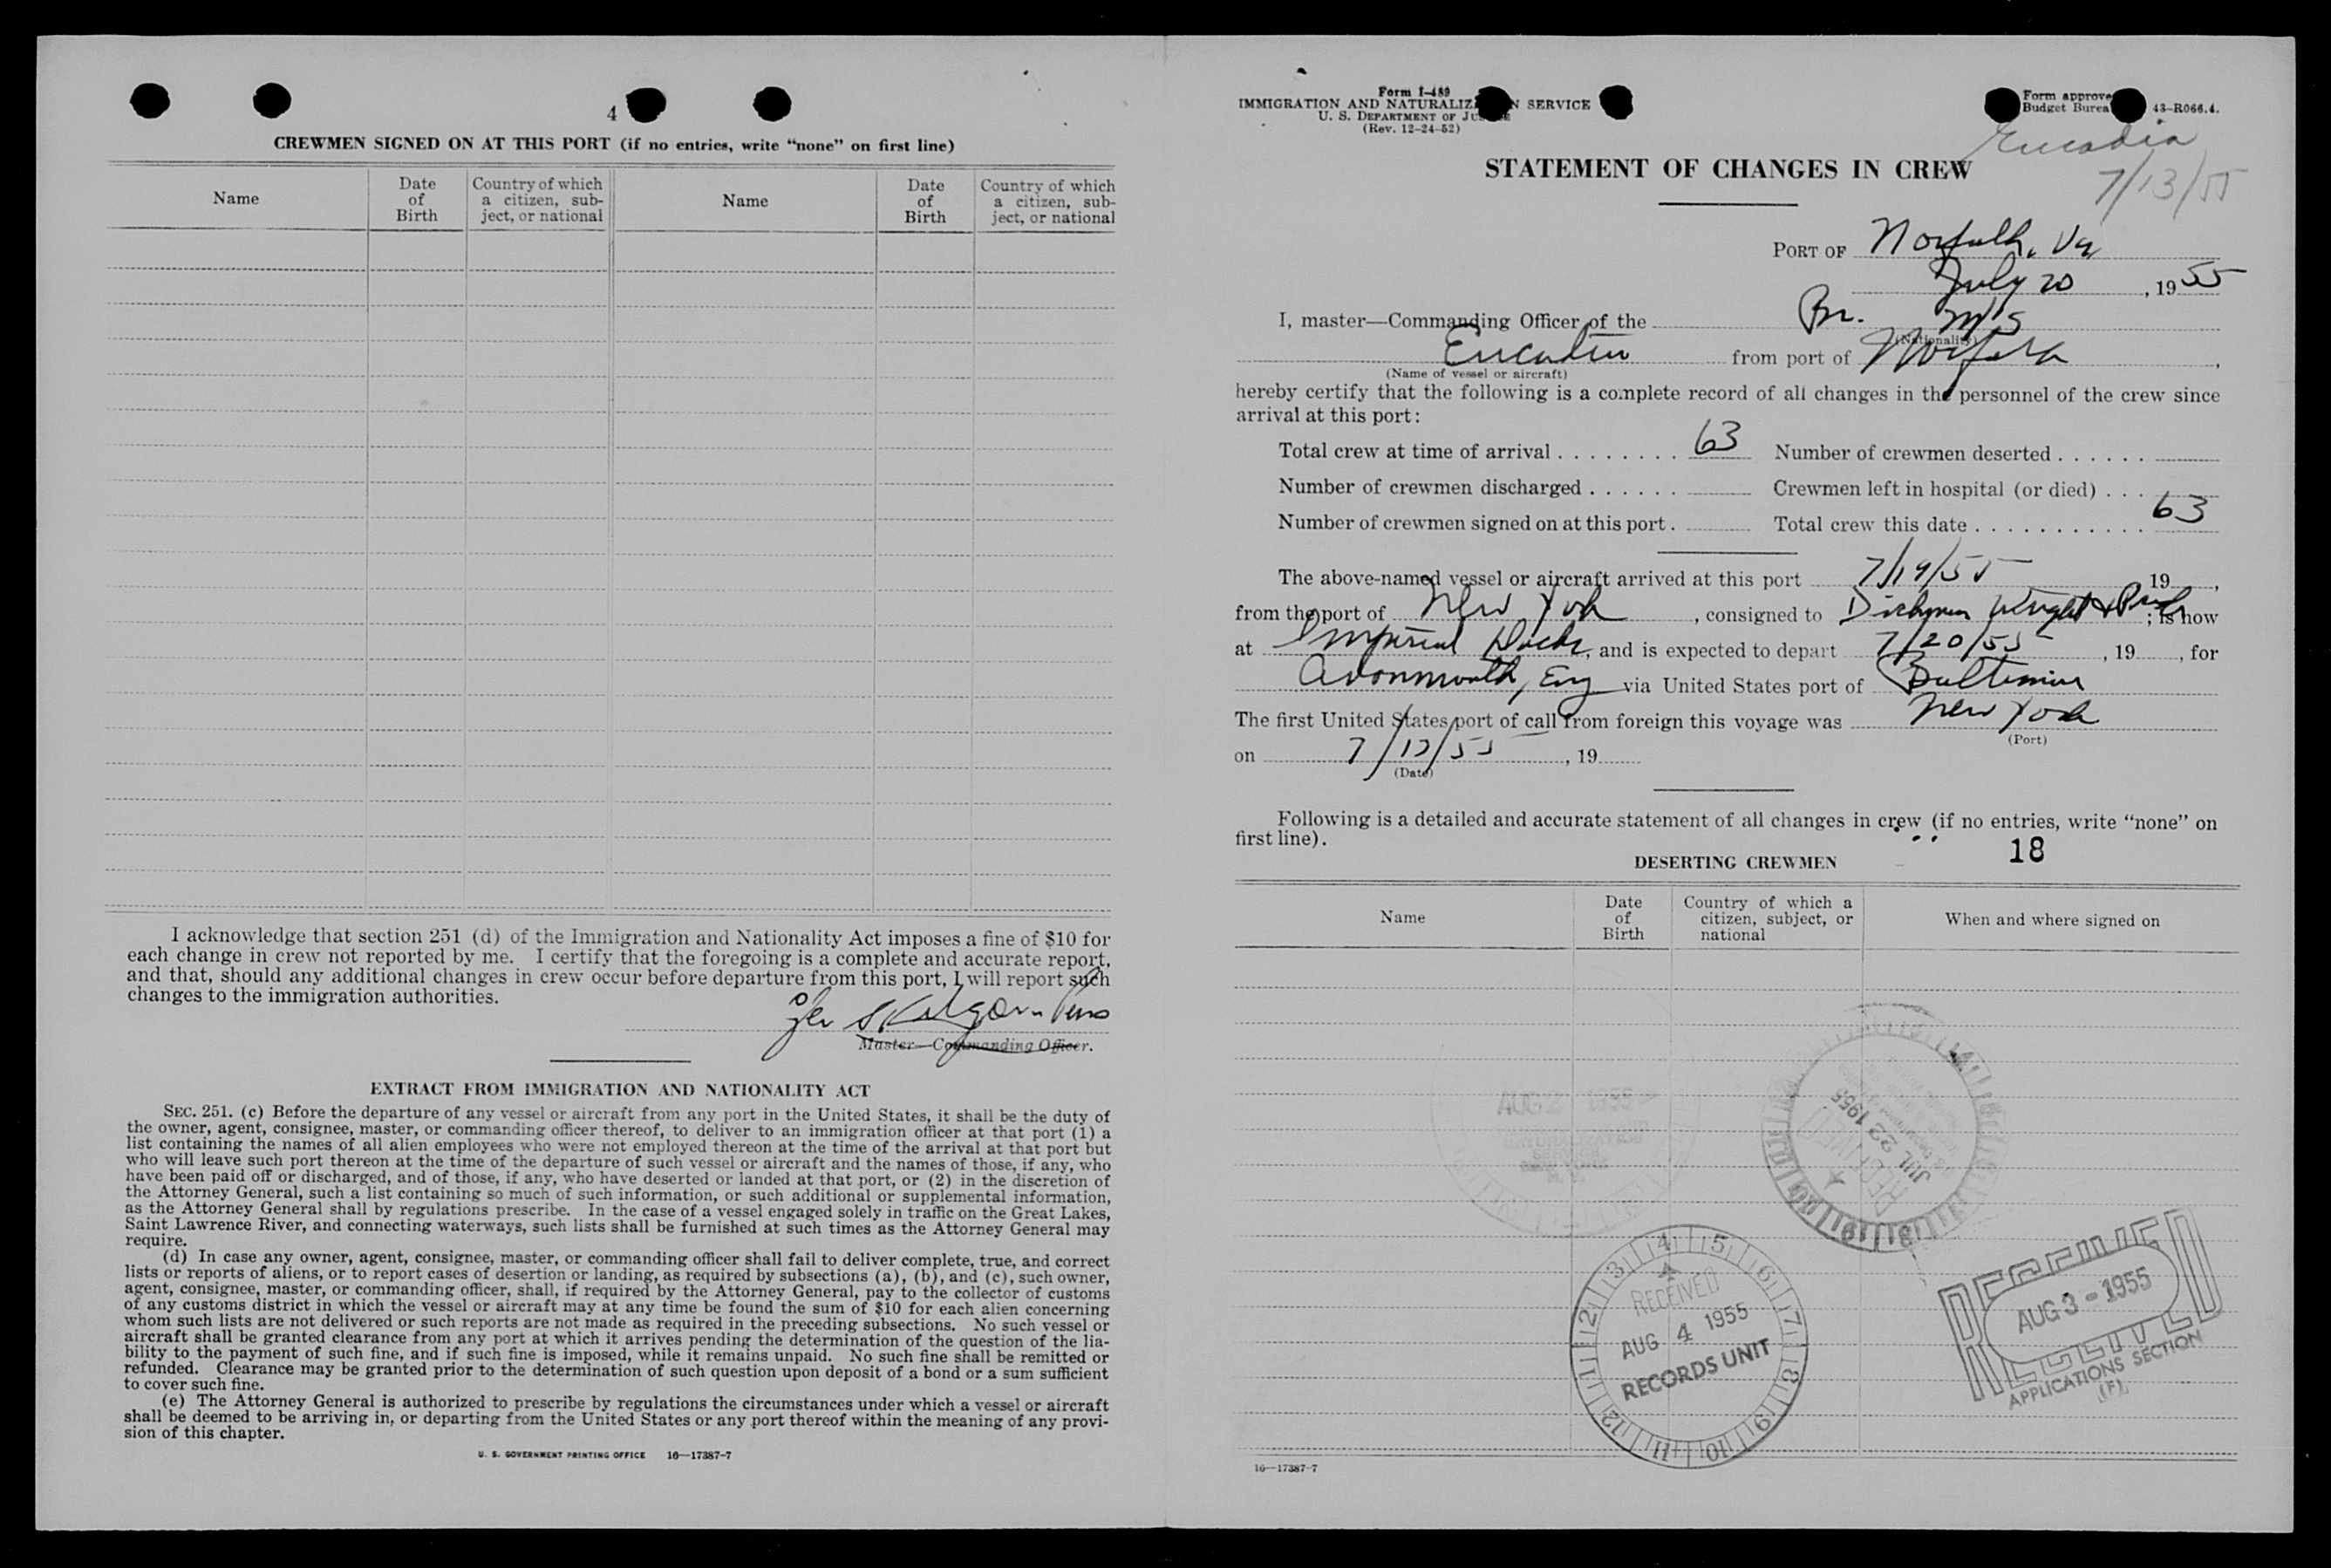 4
CREWMEN SIGNED ON AT THIS PORT (if no entries, write “none” on first line)
Name
Date of Birth
Country of which a citizen, subject, or national
Name
Date of Birth
Country of which a citizen, subject, or national
I acknowledge that section 251 (d) of the Immigration and Nationality Act imposes a fine of $10 for
each change in crew not reported by me. I certify that the foregoing is a complete and accurate report,
and that, should any additional changes in crew occur before departure from this port, I will report such
changes to the immigration authorities.
Master—Commanding Officer.
EXTRACT FROM IMMIGRATION AND NATIONALITY ACT
SEC. 251. (c) Before the departure of any vessel or aircraft from any port in the United States, it shall be the duty of
the owner, agent, consignee, master, or commanding officer thereof, to deliver to an immigration officer at that port (1) a
list containing the names of all alien employees who were not employed thereon at the time of the arrival at that port but
who will leave such port thereon at the time of the departure of such vessel or aircraft and the names of those, if any, who
have been paid off or discharged, and of those, if any, who have deserted or landed at that port, or (2) in the discretion of
the Attorney General, such a list containing so much of such information, or such additional or supplemental information,
as the Attorney General shall by regulations prescribe. In the case of a vessel engaged solely in traffic on the Great Lakes,
Saint Lawrence River, and connecting waterways, such lists shall be furnished at such times as the Attorney General may
require.
(d) In case any owner, agent, consignee, master, or commanding officer shall fail to deliver complete, true, and correct
lists or reports of aliens, or to report cases of desertion or landing, as required by subsections (a), (b), and (c), such owner,
agent, consignee, master, or commanding officer, shall, if required by the Attorney General, pay to the collector of customs
of any customs district in which the vessel or aircraft may at any time be found the sum of $10 for each alien concerning
whom such lists are not delivered or such reports are not made as required in the preceding subsections. No such vessel or
aircraft shall be granted clearance from any port at which it arrives pending the determination of the question of the lia-
bility to the payment of such fine, and if such fine is imposed, while it remains unpaid. No such fine shall be remitted or
refunded. Clearance may be granted prior to the determination of such question upon deposit of a bond or a sum sufficient
to cover such fine.
(e) The Attorney General is authorized to prescribe by regulations the circumstances under which a vessel or aircraft
shall be deemed to be arriving in, or departing from the United States or any port thereof within the meaning of any provi-
sion of this chapter.
U. S. GOVERNMENT PRINTING OFFICE 16—17387-7
Form I-489
IMMIGRATION AND NATURALIZ N SERVICE
U. S. DEPARTMENT OF JUSTICE
(Rev. 12-24-52)
Form approve
Budget Burea 43-R066.4.
Eucadia
7/13/55
STATEMENT OF CHANGES IN CREW
PORT OF Norfolk, Va
July 20, 1955
I, master—Commanding Officer of the Br. M/S
(Nationality)
Eucadia from port of Norfolk,
(Name of vessel or aircraft)
hereby certify that the following is a complete record of all changes in the personnel of the crew since
arrival at this port:
Total crew at time of arrival 63 Number of crewmen deserted
Number of crewmen discharged Crewmen left in hospital (or died)
Number of crewmen signed on at this port. Total crew this date 63
The above-named vessel or aircraft arrived at this port 7/19/55 19 ,
from the port of New York, consigned to Dichman Wright & Pugh; is now
at Imperial Docks, and is expected to depart 7/20/55, 19 , for
Avonmouth, Eng via United States port of Baltimore
The first United States port of call from foreign this voyage was New York
(Port)
on 7/13/55, 19
(Date)
Following is a detailed and accurate statement of all changes in crew (if no entries, write “none” on
first line).
18
DESERTING CREWMEN
Name
Date of Birth
Country of which a citizen, subject, or national
When and where signed on
AUG 2 1955
RECEIVED
JUL 22 1955
RECEIVED
AUG 4 1955
RECORDS UNIT
1 2 3 4 5 6 7 8 9 10 11 12
RECEIVED
AUG 3 - 1955
APPLICATIONS SECTION
(F)
16—17387-7